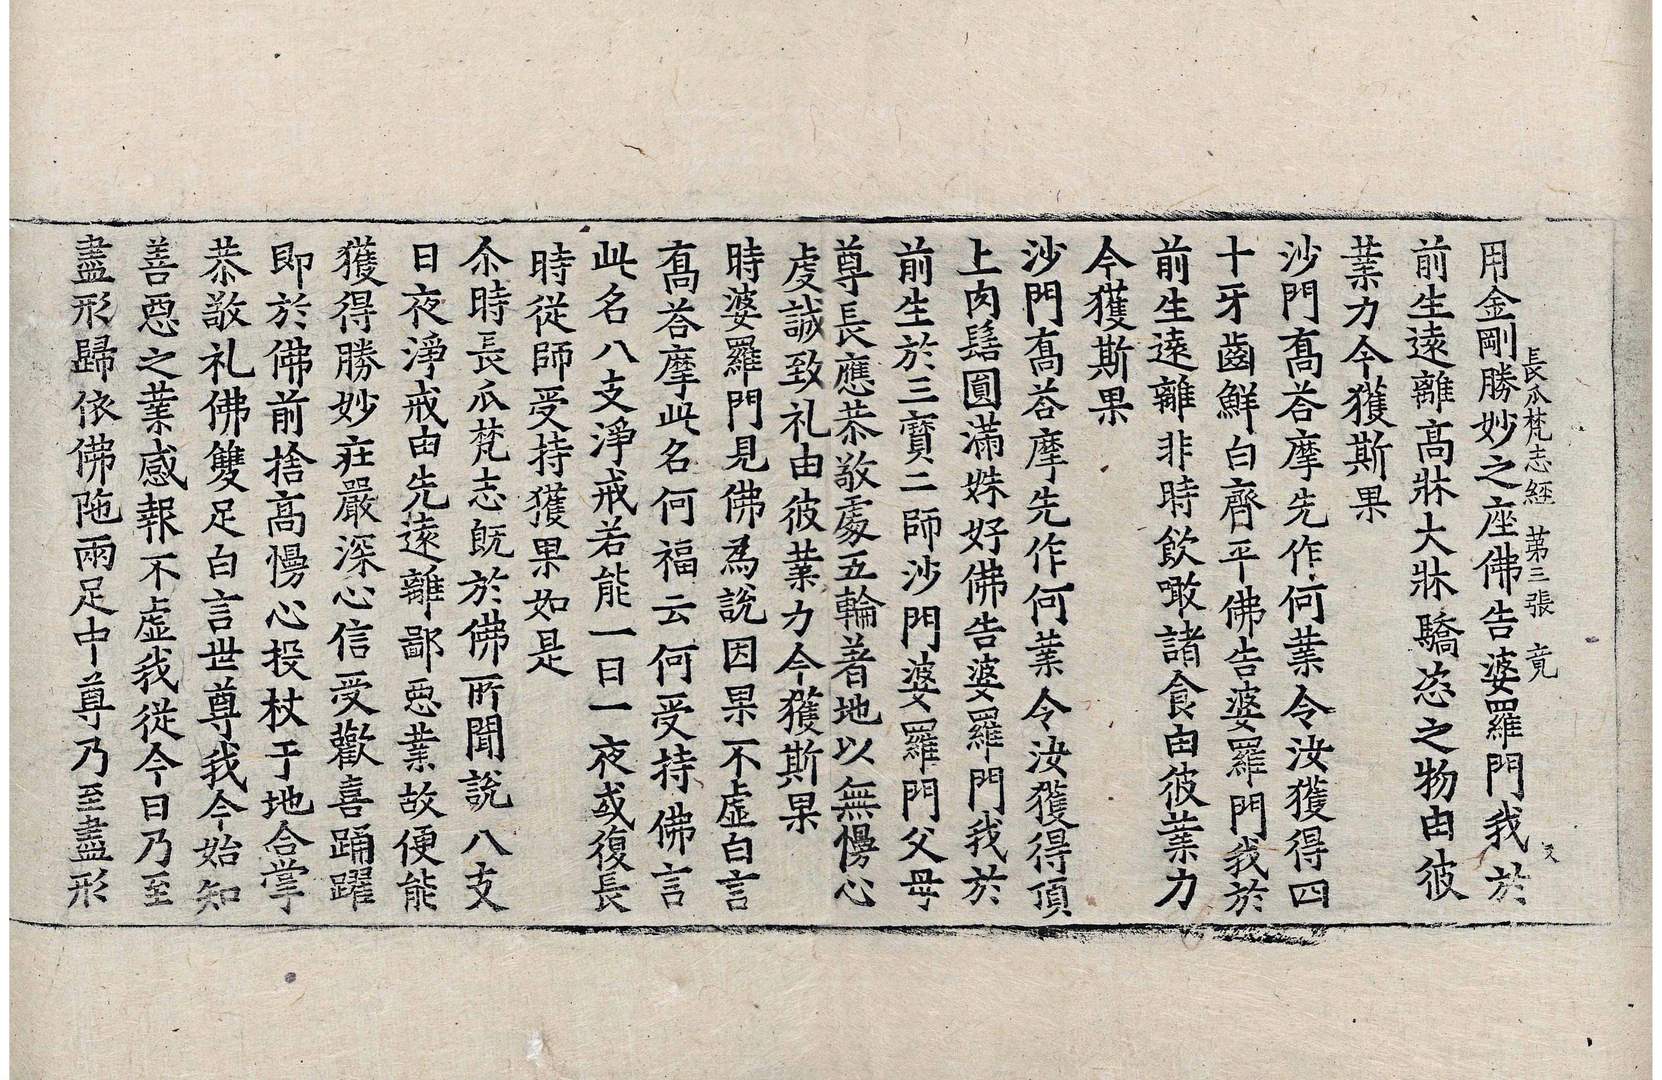 長爪梵志經 第三張 竟
用金剛勝妙之座佛告婆羅門我於
前生遠離高牀大牀驕恣之物由彼
業力今獲斯果
沙門喬荅摩先作何業令汝獲得四
十牙齒鮮白齊平佛告婆羅門我於
前生遠離非時飲噉諸食由彼業力
今獲斯果
沙門喬荅摩先作何業令汝獲得頂
上肉髻圓滿姝好佛告婆羅門我於
前生於三寶二師沙門婆羅門父母
尊長應恭敬處五輪著地以無慢心
虔誠致礼由彼業力今獲斯果
時婆羅門見佛爲說因果不虛白言
喬荅摩此名何福云何受持佛言
此名八支淨戒若能一日一夜或復長
時從師受持獲果如是
尒時長爪梵志旣於佛所聞說八支
日夜淨戒由先遠離鄙惡業故便能
獲得勝妙莊嚴深心信受歡喜踊躍
即於佛前捨高慢心投杖于地合掌
恭敬礼佛雙足白言世尊我今始知
善惡之業感報不虛我從今日乃至
盡形歸依佛陁兩足中尊乃至盡形